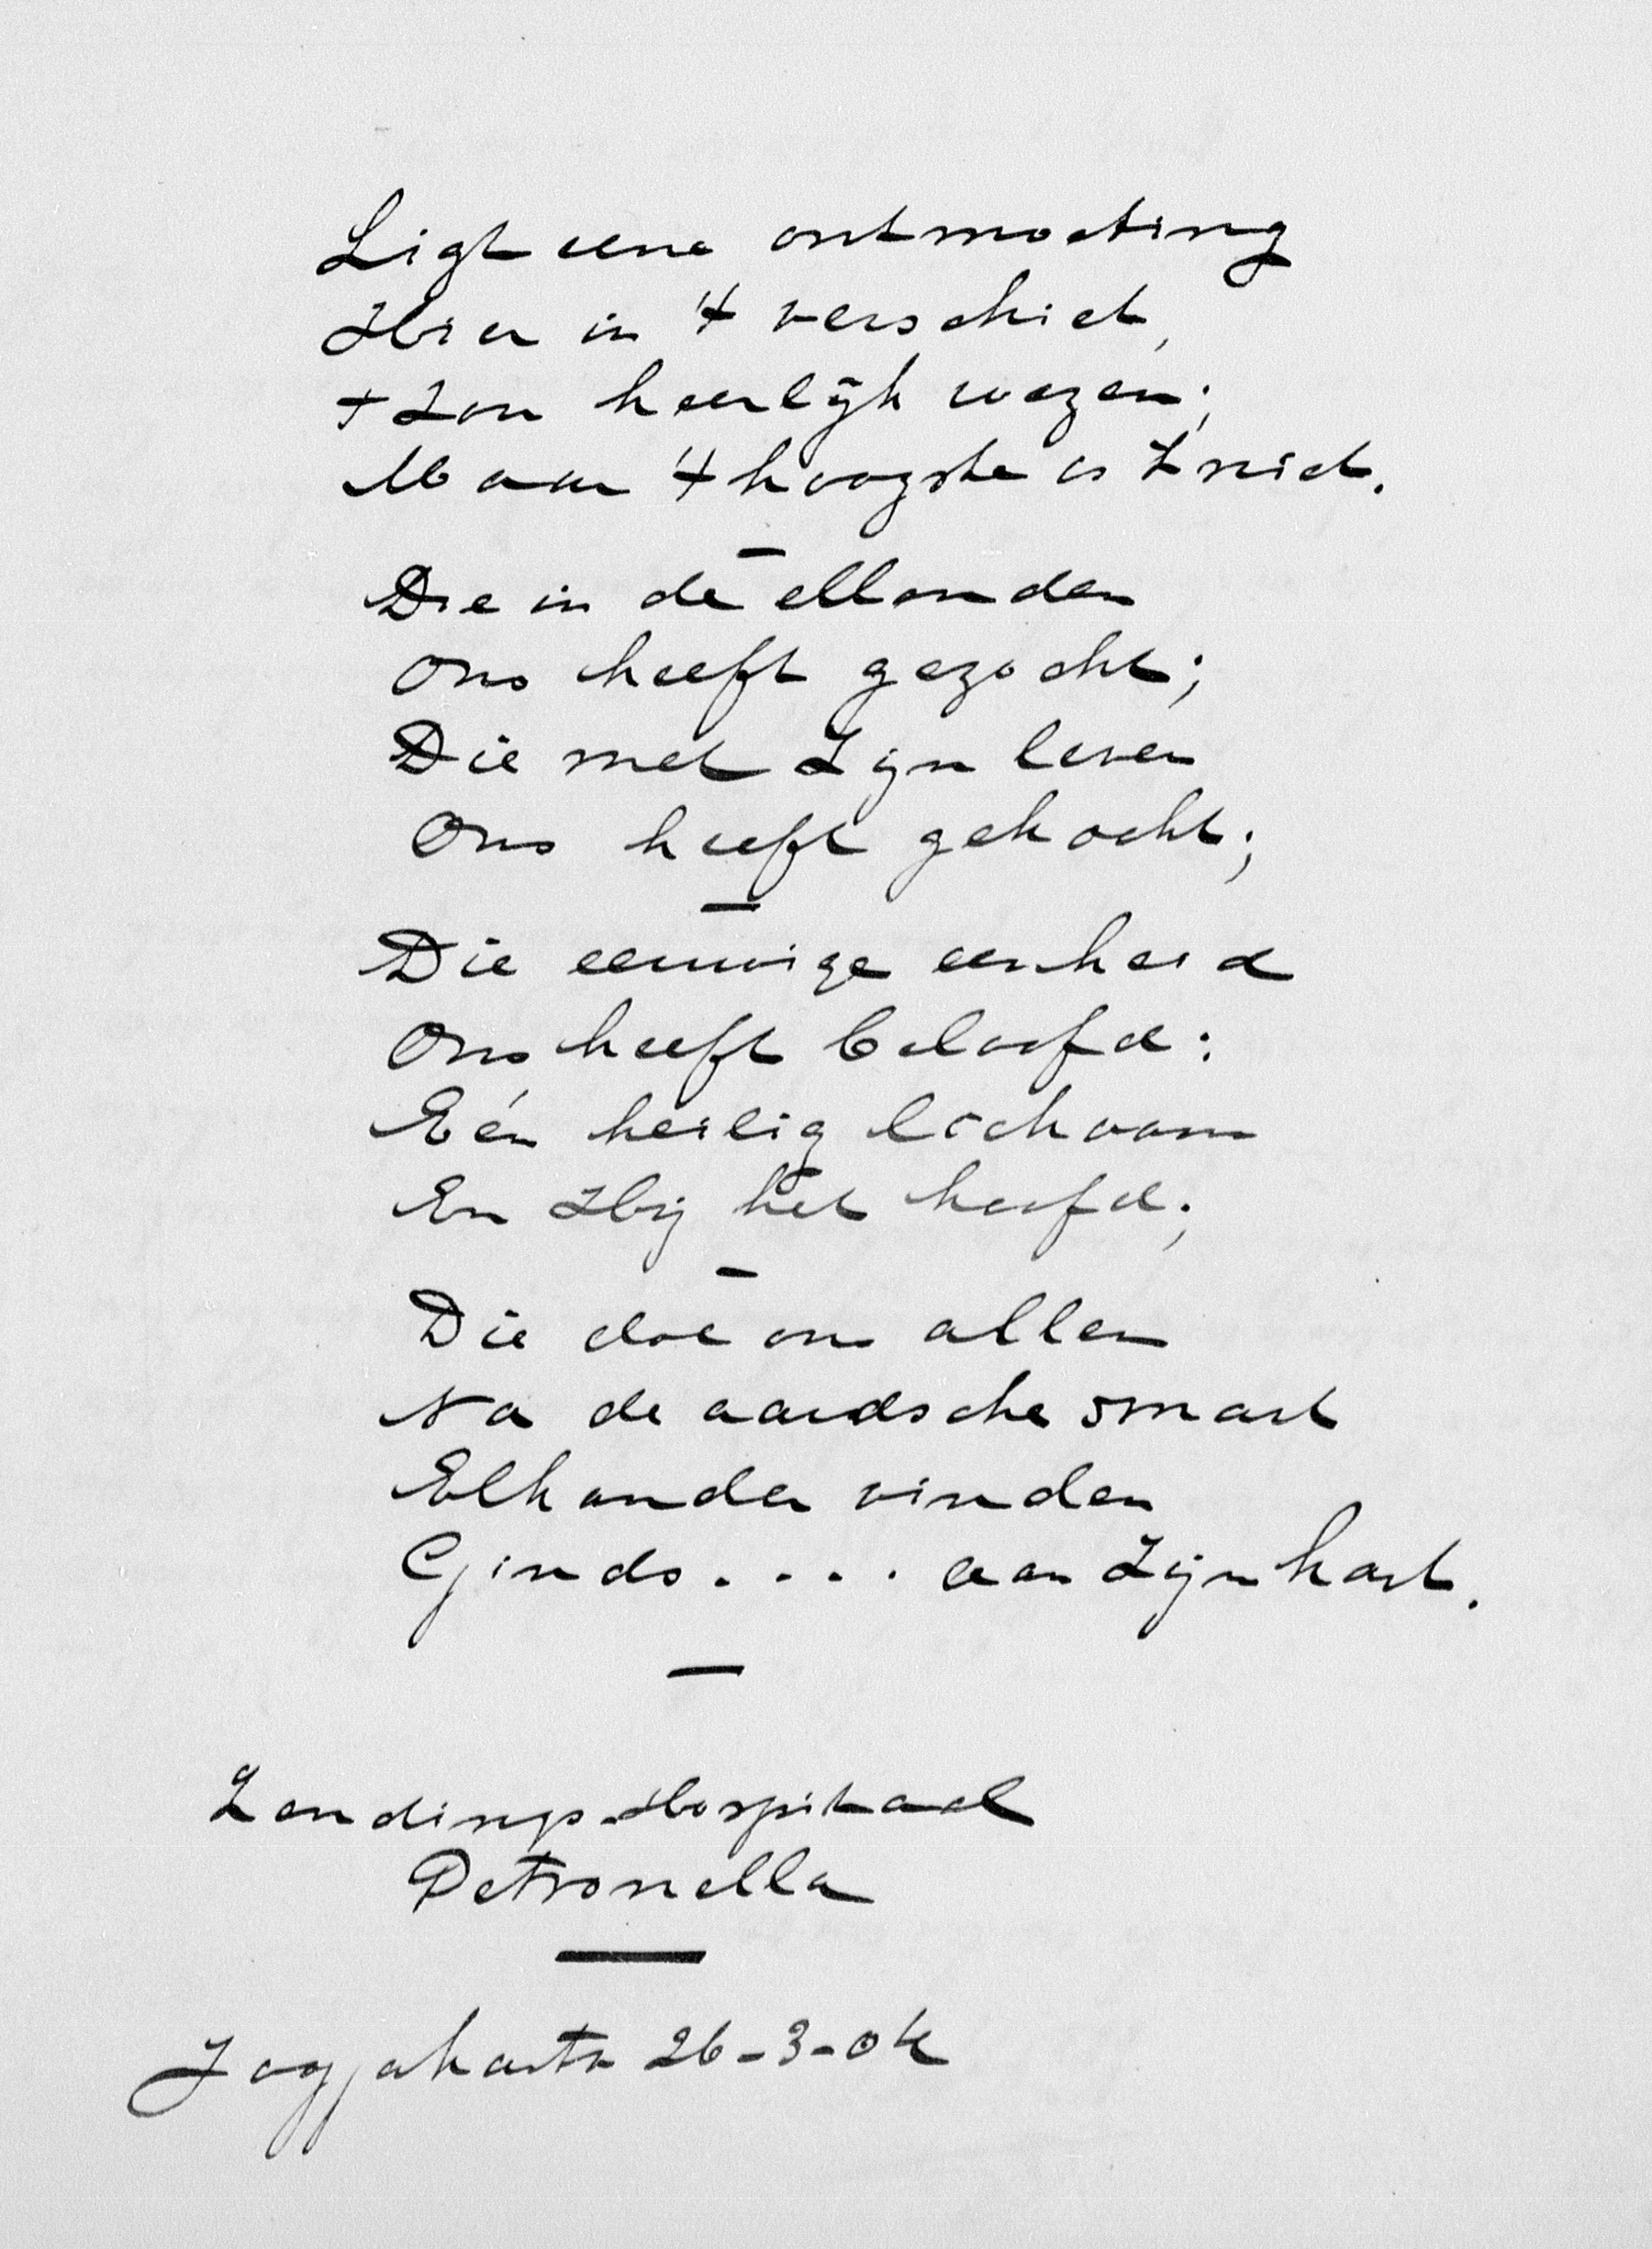 Ligt eene ontmoeting
Hier in 't verschiet,
't Zou heerlijk wezen;
Maar 't hoogste is 't niet.
Die in de ellenden
Ons heeft gezocht;
Die met Zijn leven
Ons heeft gekocht;
Die eeuwige eenheid
Ons heeft beloofd:
Eén heilig lichaam
En Hij het hoofd;
Die doe ons allen
Na de aardsche smart
Elkander vinden
Ginds.... aan Zijn hart.
Zendings-Hospitaal
Petronella
Jogjakarta 26-3-04